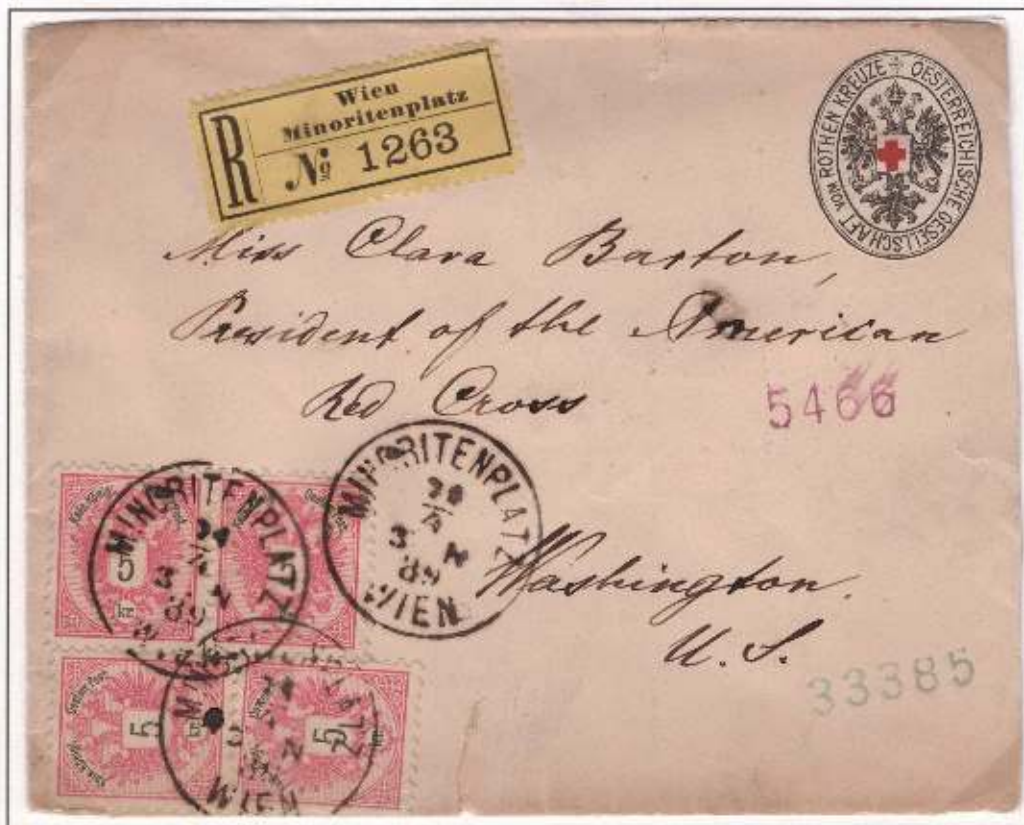 Wien
Minoritenplatz
R
№ 1263
OESTERREICHISCHE GESELLSCHAFT VOM ROTHEN KREUZE
Miss Clara Barton,
President of the American
Red Cross
5466
MINORITENPLATZ
3 N
89
WIEN
MINORITENPLATZ
24
3 N
89
5
kr
Washington.
U. S.
33385
5
5
MINORITENPLATZ
WIEN